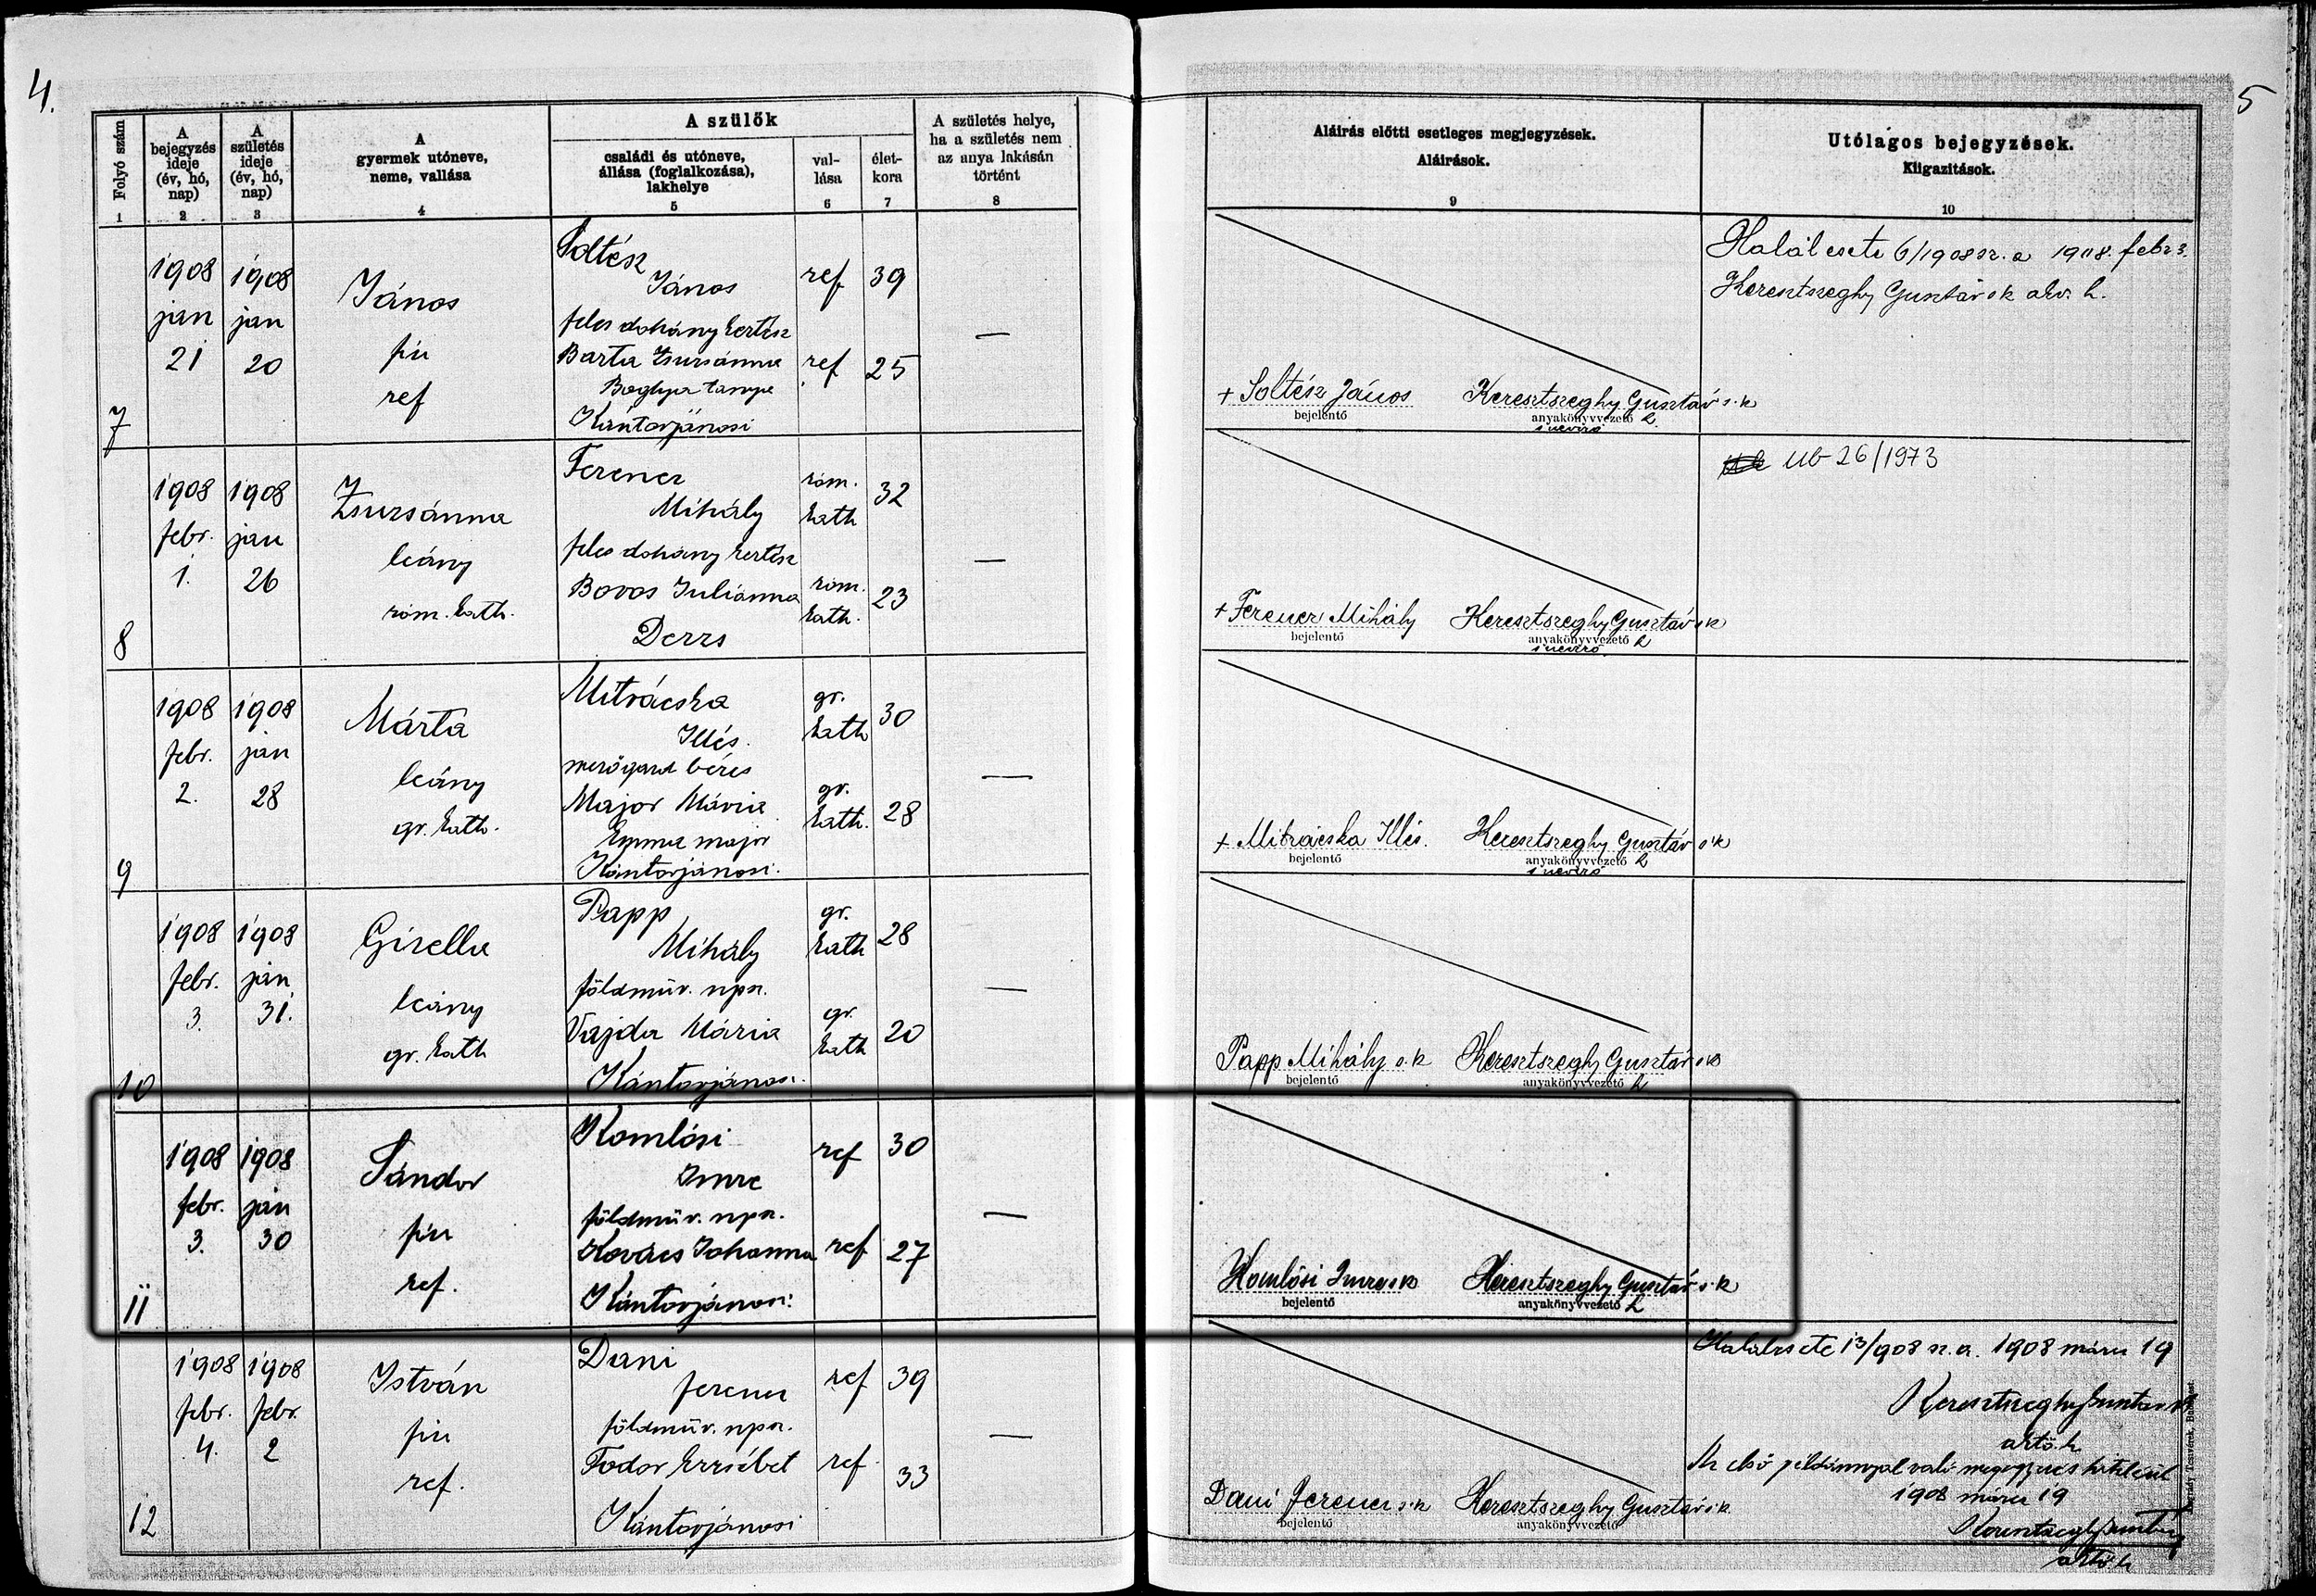 4.
5
Folyó szám
A
bejegyzés
ideje
(év, hó,
nap)
A
születés
ideje
(év, hó,
nap)
A
gyermek utóneve,
neme, vallása
A szülők
családi és utóneve,
állása (foglalkozása),
lakhelye
val-
lása
élet-
kora
A születés helye,
ha a születés nem
az anya lakásán
történt
Aláirás előtti esetleges megjegyzések.
Aláirások.
Utólagos bejegyzések.
Kiigazitások.
1 2 3 4 5 6 7 8 9 10
7
1908
jan
21
1908
jan
20
János
fiu
ref
Soltész
János
feles dohány kertész
Barta Zsuzsánna
Boghya tanya
Kántorjánosi
ref
ref
39
25
—
+ Soltész János
bejelentő
Keresztszeghy Gusztáv s.k
anyakönyvvezető h
s névíró
Halálesete 6/1908 sz. a 1908. febr 3.
Keresztszeghy Gusztáv sk akv. h.
8
1908
febr.
1.
1908
jan
26
Zsuzsánna
leány
róm. kath.
Ferencz
Mihály
feles dohány kertész
Boros Juliánna
Derzs
róm.
kath
róm.
kath.
32
23
—
+ Ferencz Mihály
bejelentő
Keresztszeghy Gusztáv sk
anyakönyvvezető h
s névíró
Ub 26/1973
9
1908
febr.
2.
1908
jan
28
Márta
leány
gr. kath.
Mitrácska
Illés.
béres
Major Mária
Emma major
Kántorjánosi.
gr.
kath
gr.
kath.
30
28
—
+ Mitrácska Illés.
bejelentő
Keresztszeghy Gusztáv s.k
anyakönyvvezető h
s névíró
10
1908
febr.
3.
1908
jan
31.
Gizella
leány
gr. kath
Papp
Mihály
földmüv. npsz.
Vajda Mária
Kántorjánosi.
gr.
kath
gr.
kath
28
20
—
Papp Mihály s.k
bejelentő
Keresztszeghy Gusztáv sk
anyakönyvvezető h
11
1908
febr.
3.
1908
jan
30
Sándor
fiu
ref.
Komlósi
Imre
földmüv. npsz.
Kovács Johanna
Kántorjánosi.
ref
ref
30
27
—
Komlósi Imre sk
bejelentő
Keresztszeghy Gusztáv s.k
anyakönyvvezető h
12
1908
febr.
4.
1908
febr.
2
István
fiu
ref.
Dani
ferencz
földmüv. npsz.
Fodor Erzsébet
Kántorjánosi
ref
ref.
39
33
—
Dani Ferencz s.k
bejelentő
Keresztszeghy Gusztáv s.k.
anyakönyvvezető
Halálesete 13/908 sz. a. 1908 márcz 19
Keresztszeghy Gusztáv sk
aktő. h
Az első példánnyal való megegyezés hiteléül
1908 márcz 19
Keresztszeghy Gusztáv
aktő. h